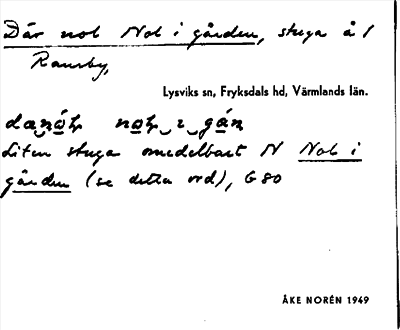 Där nol Nol i gården, stuga å /
Ransby,
Lysviks sn, Fryksdals hd, Värmlands län.
Liten stuga omedelbart N Nol i
gården (se detta ord), G 80
ÅKE NORÉN 1949